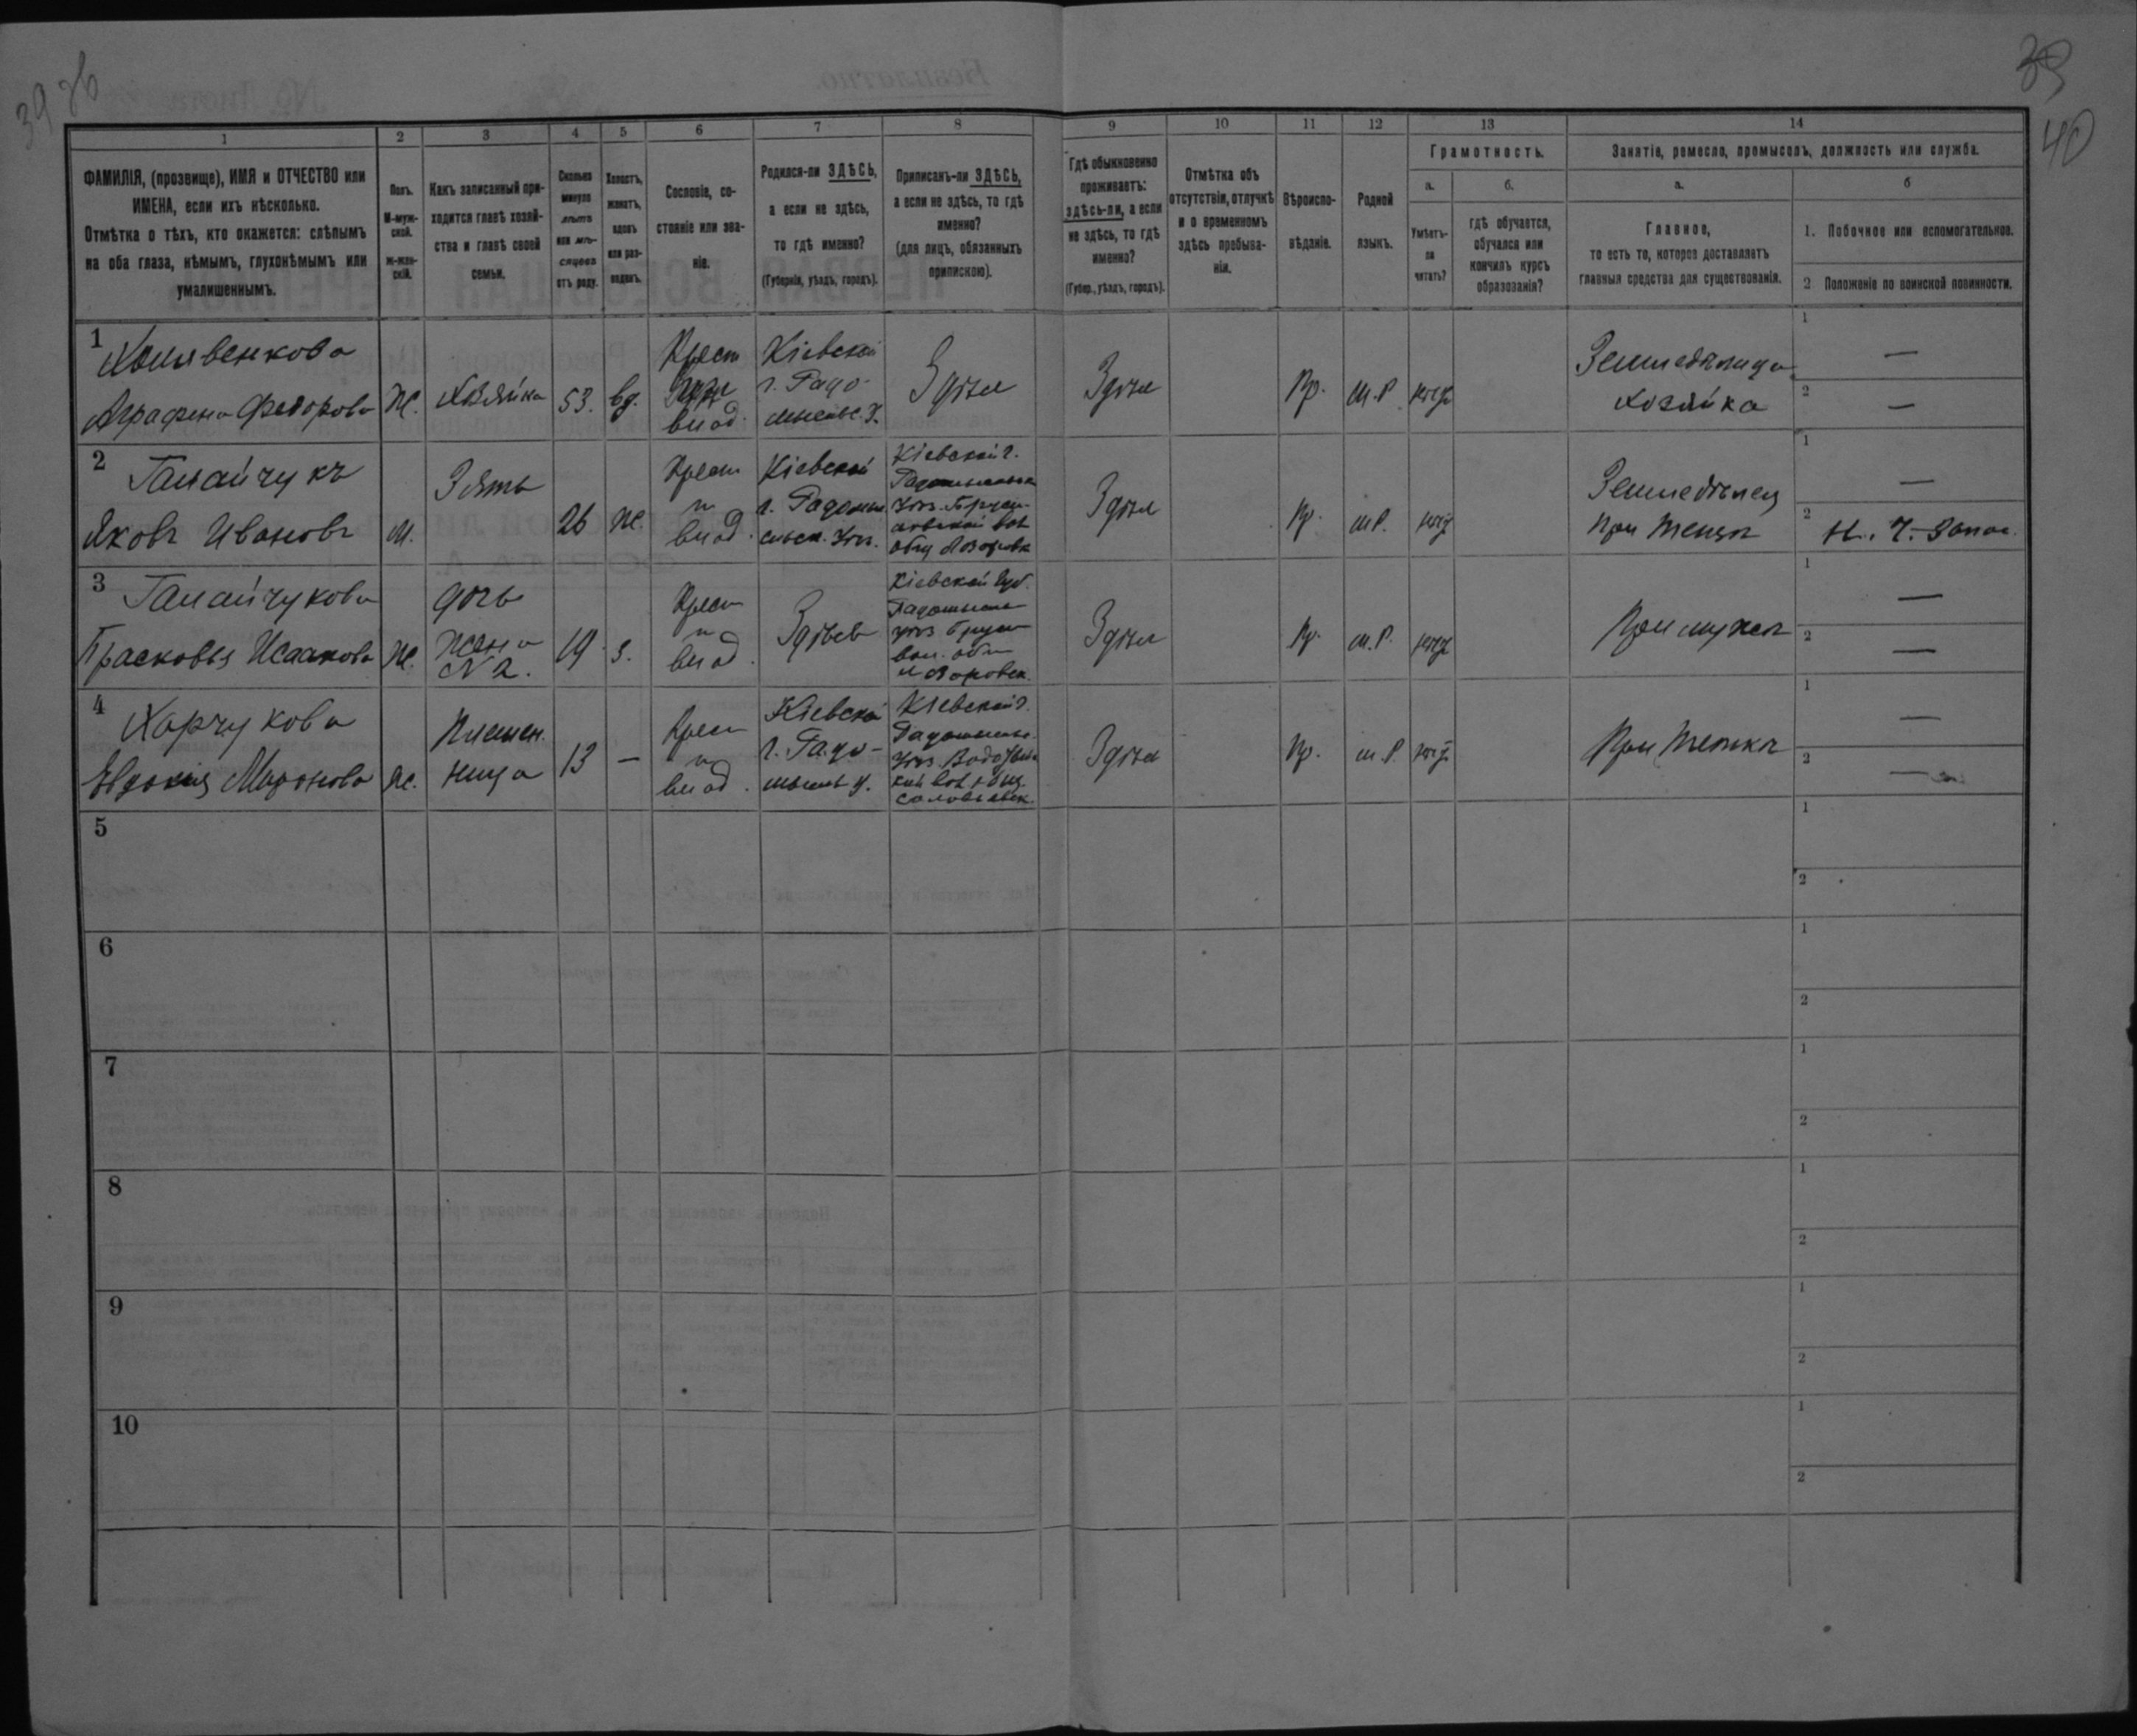 39 об
39
40
1
2
3
4
5
6
7
8
9
10
11
12
13
14
ФАМИЛІЯ, (прозвище), ИМЯ и ОТЧЕСТВО или
ИМЕНА, если ихъ нѣсколько.
Отмѣтка о тѣхъ, кто окажется: слѣпымъ
на оба глаза, нѣмымъ, глухонѣмымъ или
умалишеннымъ.
Полъ.
М-муж-
ской.
ж-жен-
скій.
Какъ записанный при-
ходится главѣ хозяй-
ства и главѣ своей
семьи.
Сколько
минуло
лѣтъ
или мѣ-
сяцевъ
отъ роду.
Холостъ,
женатъ,
вдовъ
или раз-
веденъ.
Сословіе, со-
стояніе или зва-
ніе.
Родился-ли ЗДѢСЬ,
а если не здѣсь,
то гдѣ именно?
(Губернія, уѣздъ, городъ).
Приписанъ-ли ЗДѢСЬ,
а если не здѣсь, то гдѣ
именно?
(для лицъ, обязанныхъ
припискою).
Гдѣ обыкновенно
проживаетъ:
здѣсь-ли, а если
не здѣсь, то гдѣ
именно?
(Губер., уѣздъ, городъ).
Отмѣтка объ
отсутствіи, отлучкѣ
и о временномъ
здѣсь пребыва-
ніи.
Вѣроиспо-
вѣданіе.
Родной
языкъ.
Грамотность.
а.
Умѣетъ-
ли
читать?
б.
гдѣ обучается,
обучался или
кончилъ курсъ
образованія?
Занятія, ремесло, промыселъ, должность или служба.
а.
Главное,
то есть то, которое доставляетъ
главныя средства для существованія.
б
1. Побочное или вспомогательное.
2 Положеніе по воинской повинности.
1
Аграфена Федорова
Ж.
Хозяйка
53.
вд.
Крест
влад.
Кіевской
г. Радо-
мысльс. У.
Здѣсь
Здѣсь
Пр.
м.Р.
нѣтъ
Земледѣлица
Хозяйка
1
—
2
—
2
Галайчукъ
Яковъ Ивановъ
М.
Зять
26
ж.
Крест
и
влад.
Кіевской
г. Радомы
сльск. Уѣз.
Кіевской г.
Радомысльск
Уѣз. Бруси-
ловской вол
общ Лазоровк
Здѣсь
Пр.
м.Р.
нѣтъ
Земледѣлец
при тещѣ
1
—
2
Н. Ч. Запас.
3
Галайчукова
Прасковья Исаакова
Ж.
дочь
жена
№2.
19
з.
Крест
и
влад.
Здѣсь
Кіевской Губ.
Радомысль
уѣз. Брусил
вол. общ
Лазоровск.
Здѣсь
Пр.
м.Р.
нѣтъ
При мужѣ
1
—
2
—
4
Харчукова
Евдокия Миронова
Ж.
Племен.
ница
13
—
Крест
и
влад.
Кіевской
г. Радо-
мысль у.
Кіевской г.
Радомысльс.
Уѣз.
Соловіевск.
Здѣсь
Пр.
м.Р.
нѣтъ
При теткѣ
1
—
2
—
5
1
2
6
1
2
7
1
2
8
1
2
9
1
2
10
1
2